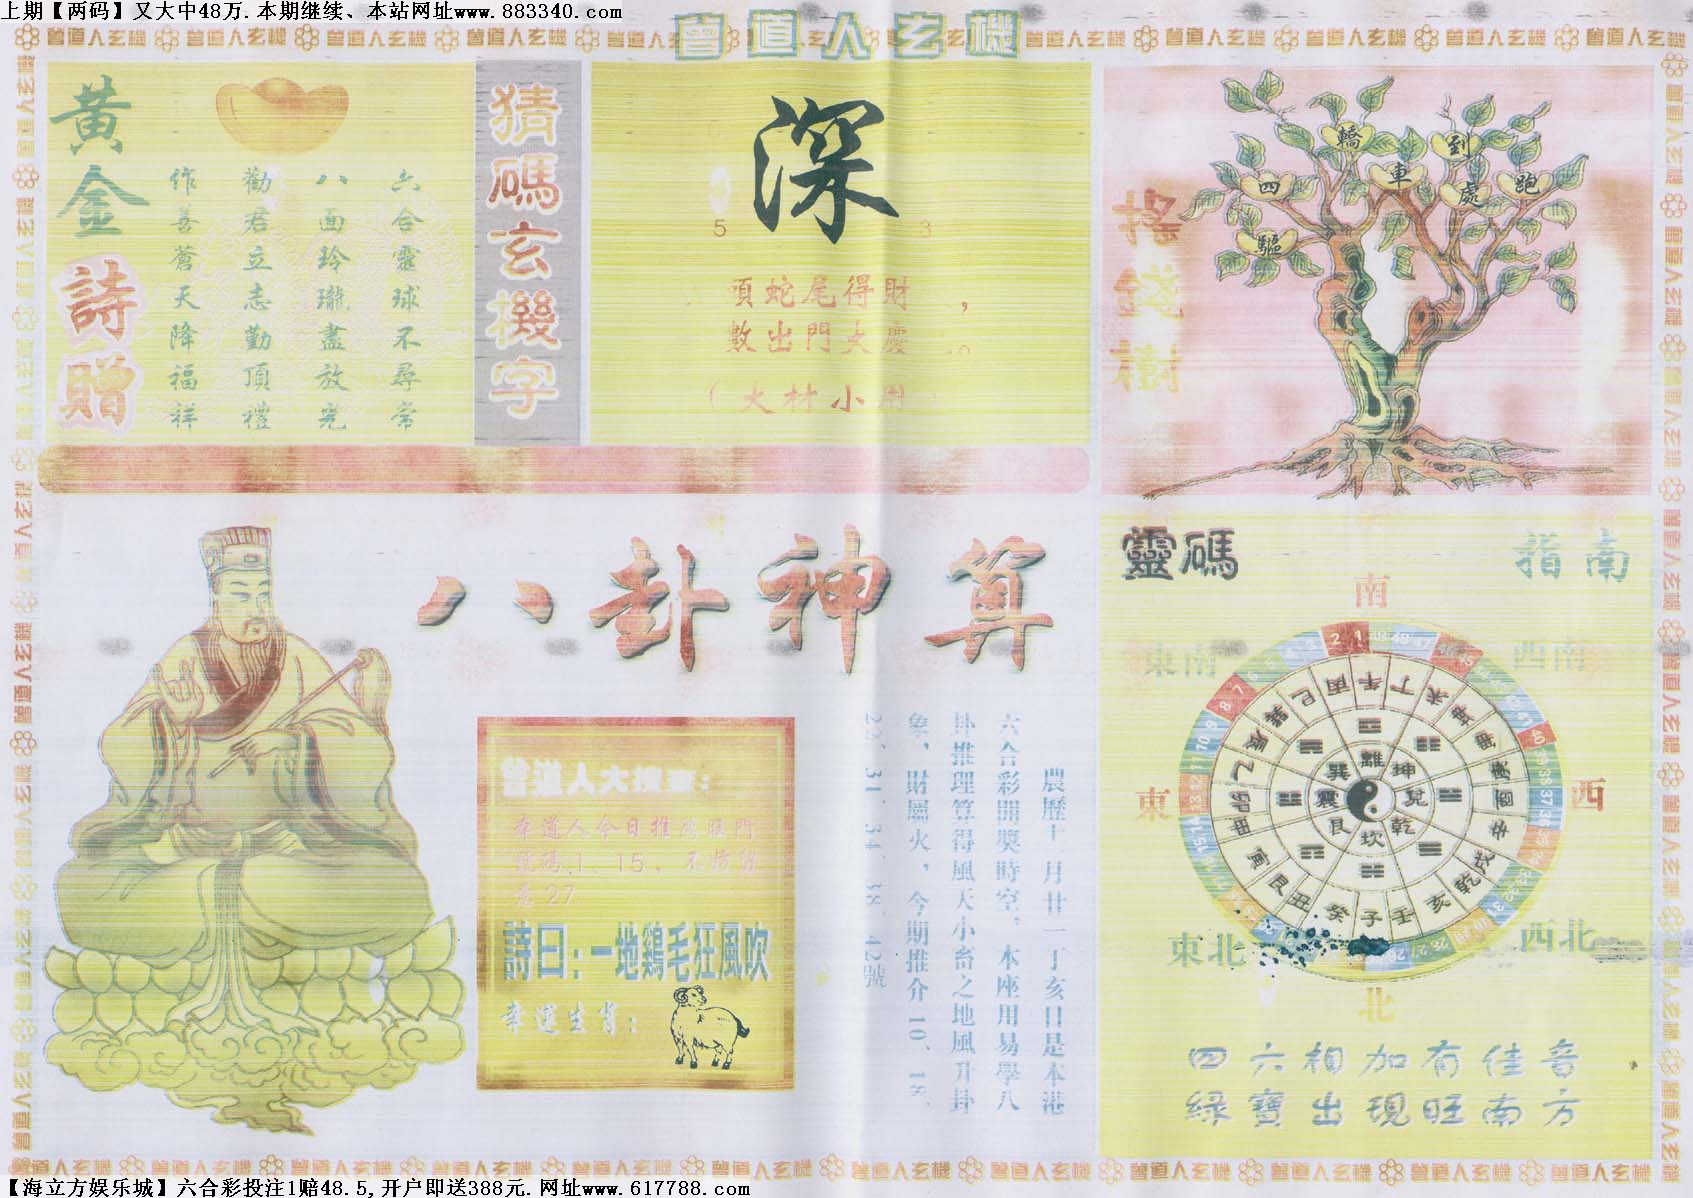 上期【两码】又大中48万.本期继续、本站网址www.883340.com
曾道人玄機
黃金詩贈
六合靈球不尋常
八面玲瓏盡放光
勸君立志勤頂禮
作善蒼天降福祥
猜碼玄機字
深
5 3
頂蛇尾得財，
數出門大慶。
(大林小
搖錢樹
四驅轎車到處跑
八卦神算
農歷十一月廿一丁亥日是本港
六合彩開獎時空，本座用易學八
卦推理算得風天小畜之地風升卦
象，財屬火，今期推介10、18、
22、31、34、38、42號
曾道人大搜索：
幸道人今日推
號碼1、15、不妨
意27
詩曰：一地鷄毛狂風吹
幸運生肖：
靈碼指南
南
東南 西南
東 西
東北 西北
北
離坤兌乾坎艮震巽
午丁未坤申庚酉辛戌乾亥壬子癸丑艮寅甲卯乙辰巽巳丙
四六相加有佳音
綠寶出現旺南方
【海立方娱乐城】六合彩投注1赔48.5,开户即送388元.网址www.617788.com